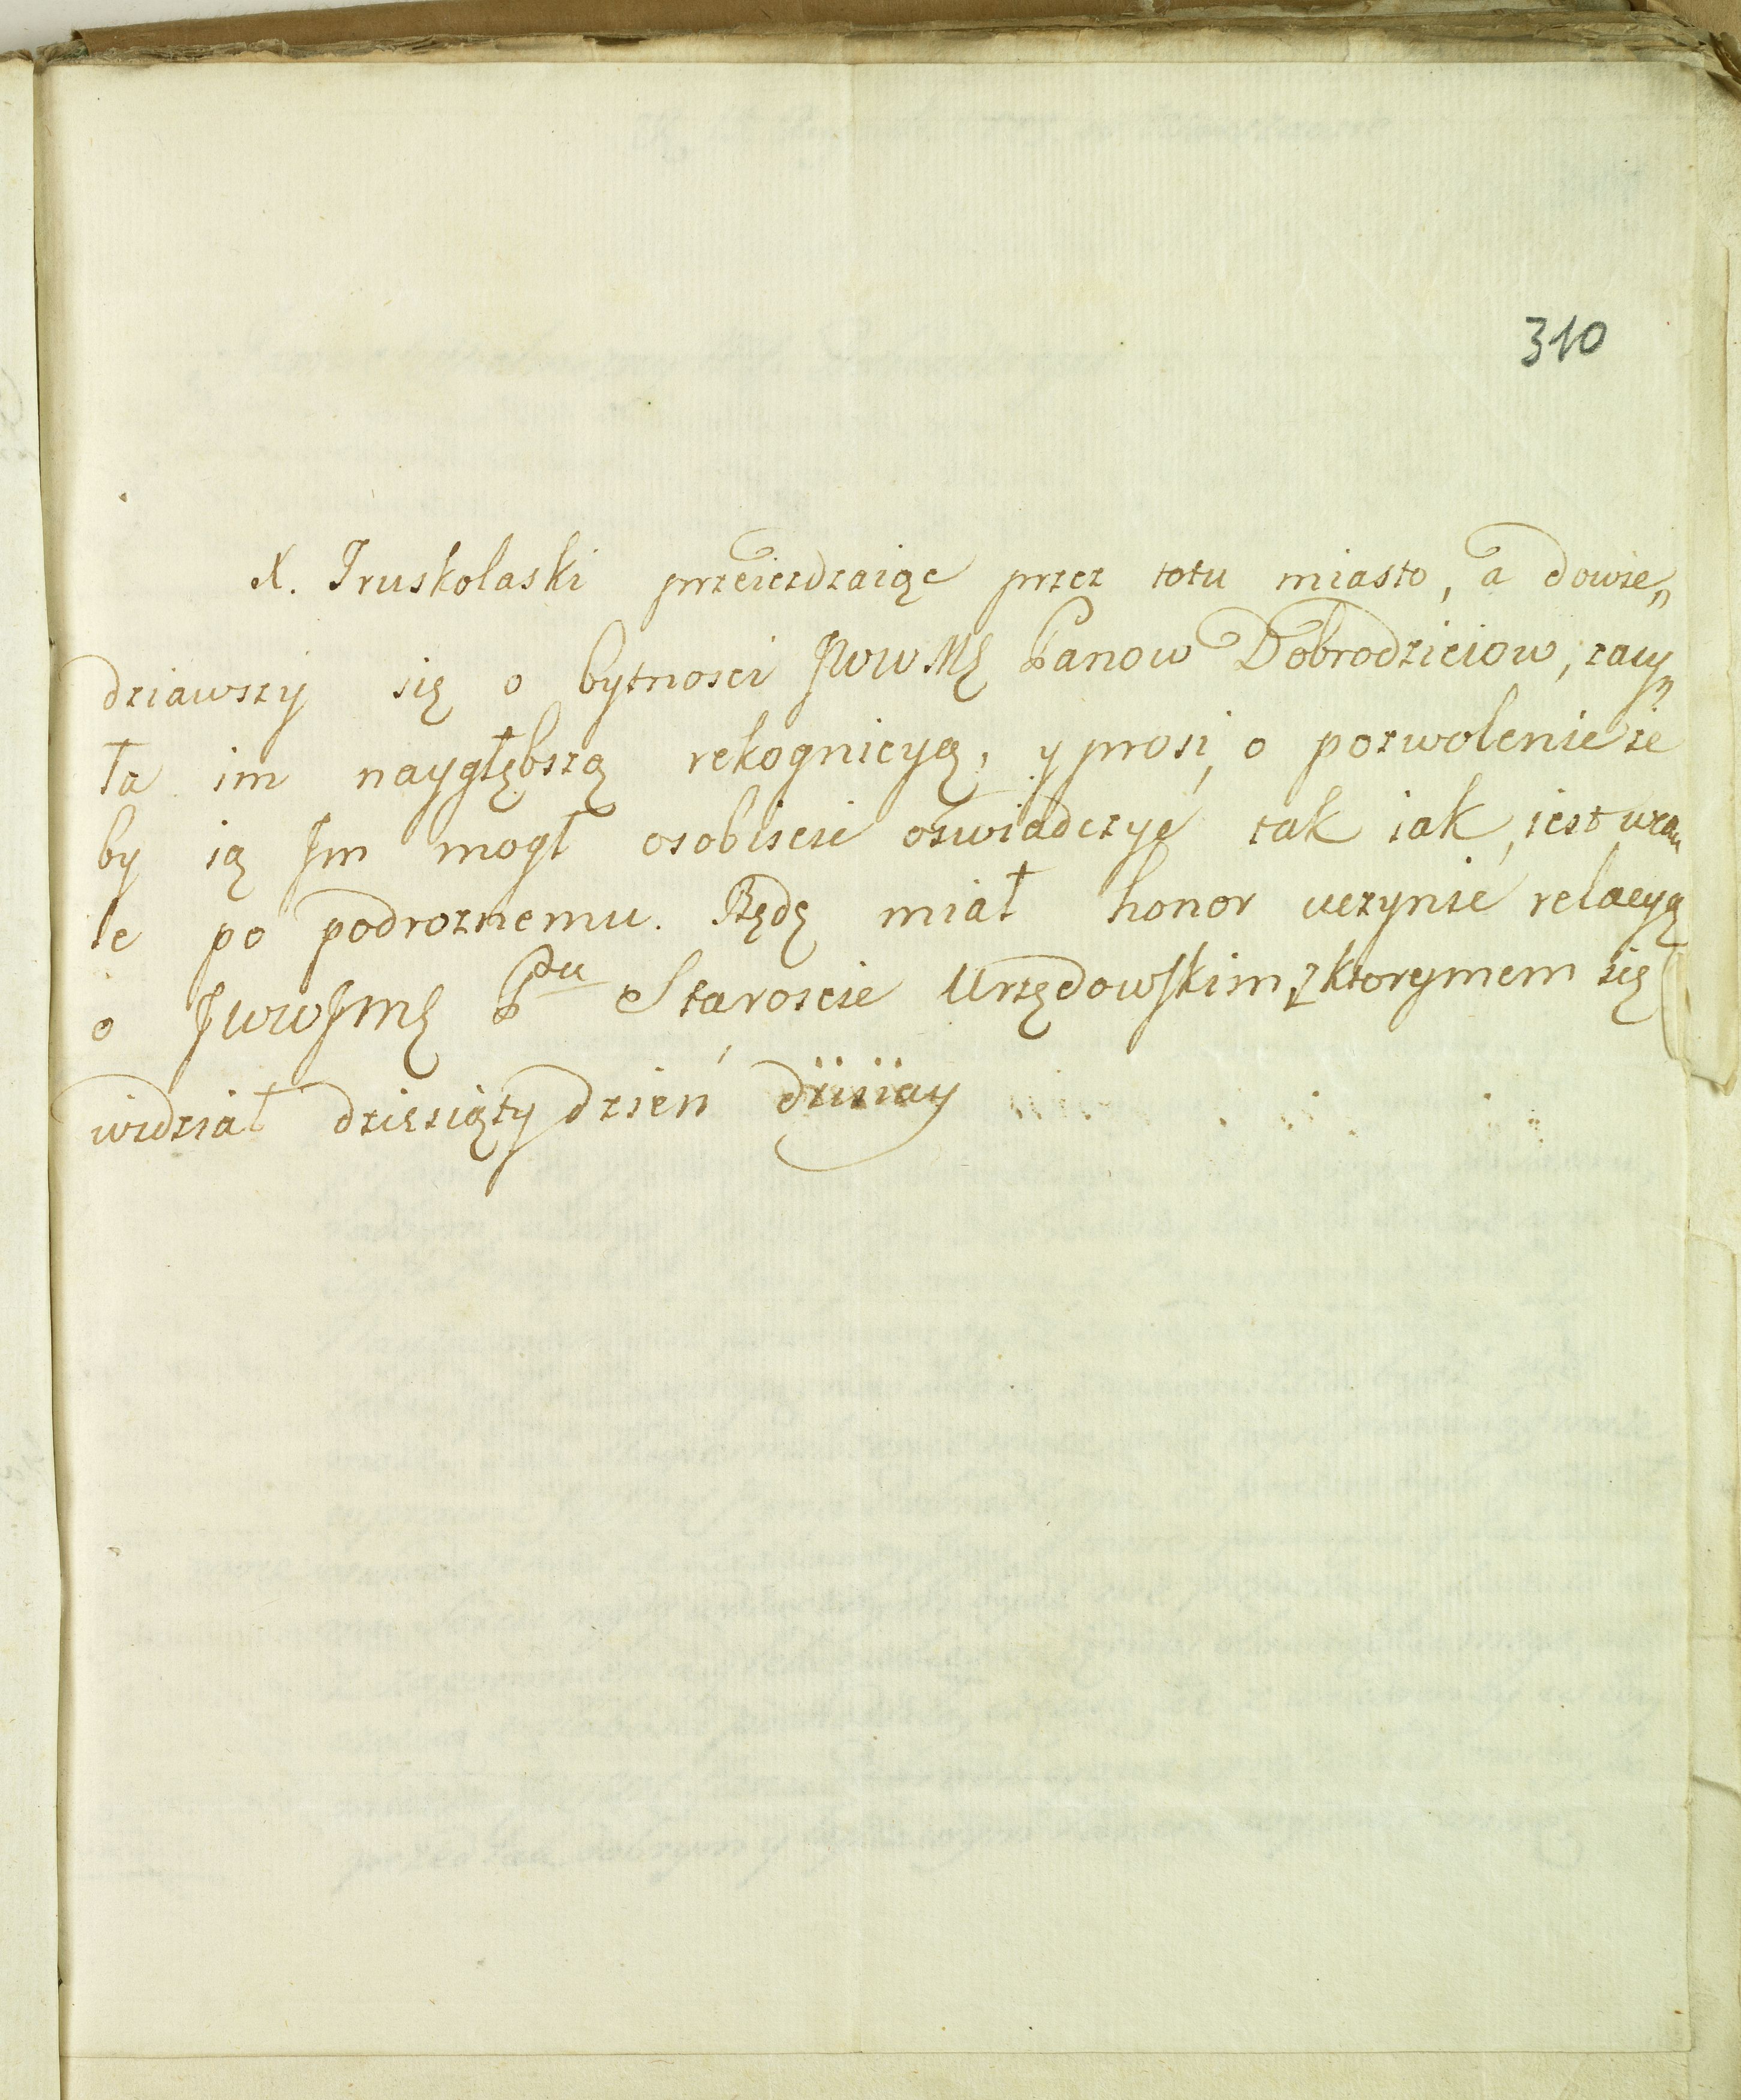 310
X. Truskolaski przeiezdzaiąc przez totu miasto, a dowie„
dziawszy się o bytnosci JWWMę Panow Dobrodzieiow, zasy„
ła im naygłębszą rekognicyą, y prosi, o pozwolenie ze
by ią Jm mogł osobiscie oswiadczyć tak iak, iest
le po podroznemu. Będę miał honor uczynić relacyą
o JWWJmę Pu Staroscie Urzędowskim, z ktorymem się
widział dziesiąty dzień dzisiay